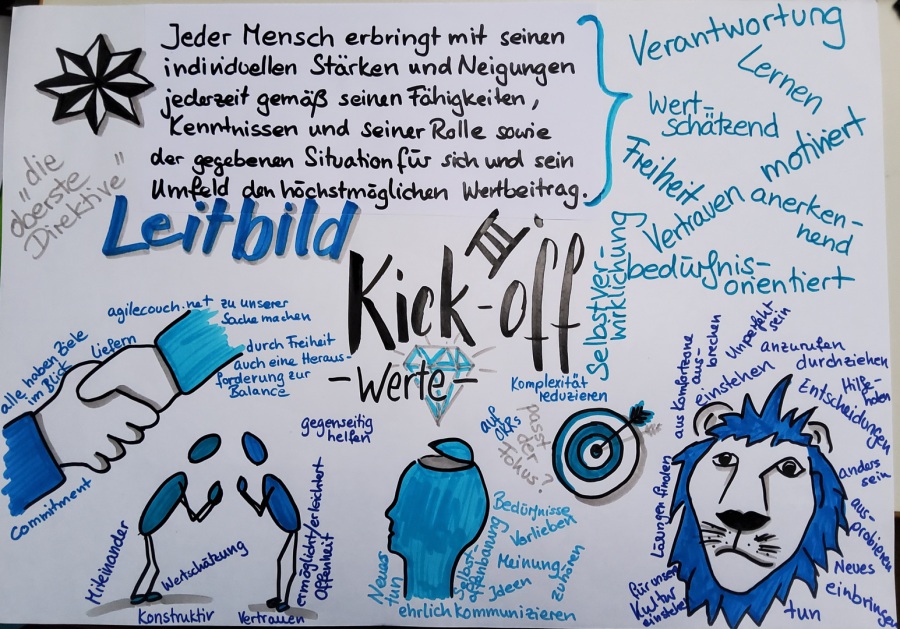 Jeder Mensch erbringt mit seinen
individuellen Stärken und Neigungen
jederzeit gemäß seinen Fähigkeiten,
Kenntnissen und seiner Rolle sowie
der gegebenen Situation für sich und sein
Umfeld den höchstmöglichen Wertbeitrag.
„die
oberste
Direktive"
Leitbild
Verantwortung
Lernen
Wert-
schätzend
motiviert
Freiheit
Vertrauen
anerken-
nend
Selbstver-
wirklichung
bedürfnis-
orientiert
Kick-off
III
-Werte-
agilecouch.net
zu unserer
Sache machen
alle haben Ziele
im Blick
liefern
durch Freiheit
auch eine Heraus-
forderung zur
Balance
Commitment
gegenseitig
helfen
Miteinander
Wertschätzung
ermöglicht/erleichtert
Offenheit
Konstruktiv
Vertrauen
Komplexität
reduzieren
auf
OKRs
passt
der
Fokus?
Neues
tun
Selbst-
offenbarung
Bedürfnisse
Verlieben
Meinung
Ideen
zuhören
ehrlich kommunizieren
aus Komfortzone
ausbrechen
einstehen
Unperfekt
sein
anzurufen
durchziehen
Hilfe
holen
Entscheidungen
anders
sein
aus-
probieren
Neues
einbringen
tun
Lösungen finden
für unsere
Kultur
einstehen